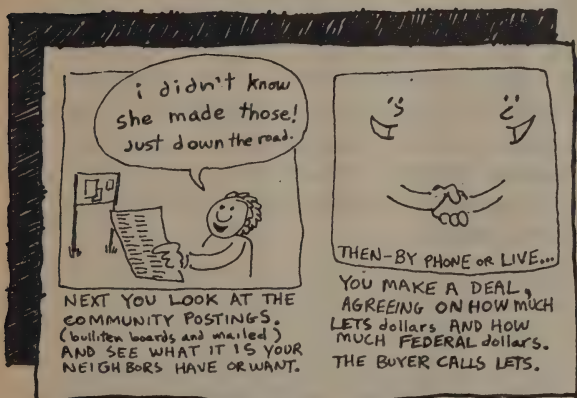 i didn't know
she made those!
Just down the road.
NEXT YOU LOOK AT THE
COMMUNITY POSTINGS.
(bulliten boards and mailed)
AND SEE WHAT IT IS YOUR
NEIGHBORS HAVE OR WANT.
THEN-BY PHONE OR LIVE...
YOU MAKE A DEAL,
AGREEING ON HOW MUCH
LETS dollars AND HOW
MUCH FEDERAL dollars.
THE BUYER CALLS LETS.